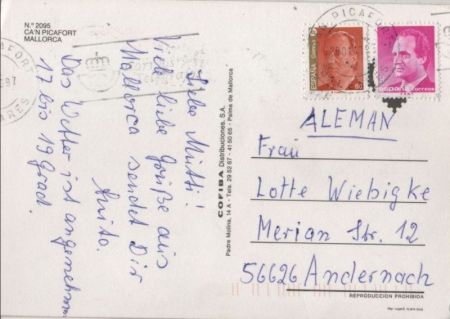 N.º 2095
CA'N PICAFORT
MALLORCA
Liebe Mutti!
Viele liebe Grüße aus
Mallorca sendet Dir
Anita.
Das Wetter ist angenehm
17 bis 19 Grad.
COFIBA Distribuciones, S.A.
Padre Molina, 14 A - Tels. 29 52 67 - 41 50 65 - Palma de Mallorca
PICAFORT
ESPAÑA
ESPAÑA correos
ALEMAN
Frau
Lotte Wiebigke
Merian Str. 12
56626 Andernach
REPRODUCCION PROHIBIDA